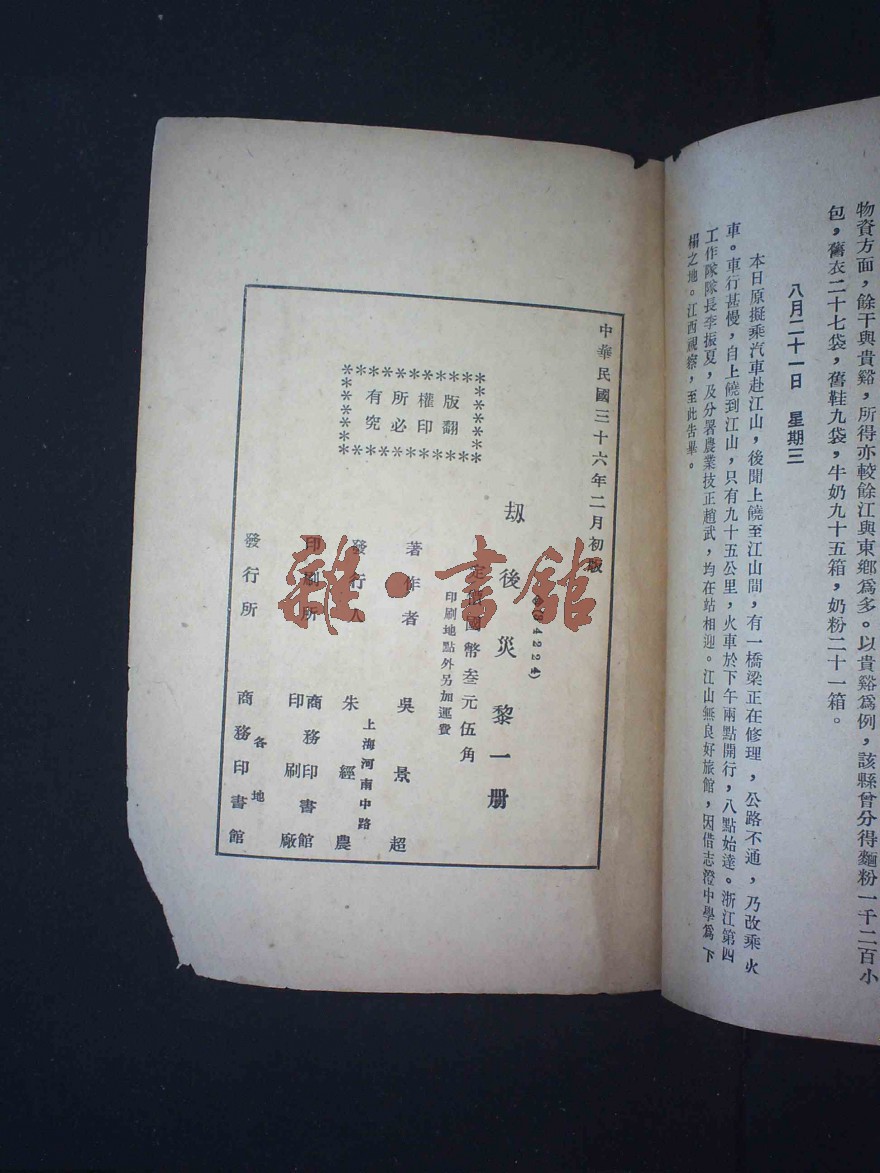 物資方面，餘干與貴谿，所得亦較餘江與東鄉爲多。以貴谿爲例，該縣曾分得麵粉一千二百小
包，舊衣二十七袋，舊鞋九袋，牛奶九十五箱，奶粉二十一箱。
八月二十一日 星期三
本日原擬乘汽車赴江山，後聞上饒至江山間，有一橋梁正在修理，公路不通，乃改乘火
車。車行甚慢，自上饒到江山，只有九十五公里，火車於下午兩點開行，八點始達。浙江第四
工作隊隊長李振夏，及分署農業技正趙武，均在站相迎。江山無良好旅館，因借志澄中學爲下
榻之地。江西視察，至此告畢。
中華民國三十六年二月初版
劫後災黎一册
定價國幣叁元伍角
印刷地點外另加運費
版權所有
翻印必究
著作者 吳景超
發行人 朱經農
上海河南中路
印刷所 商務印書館
印刷廠
發行所 商務印書館
各地
雜·書館